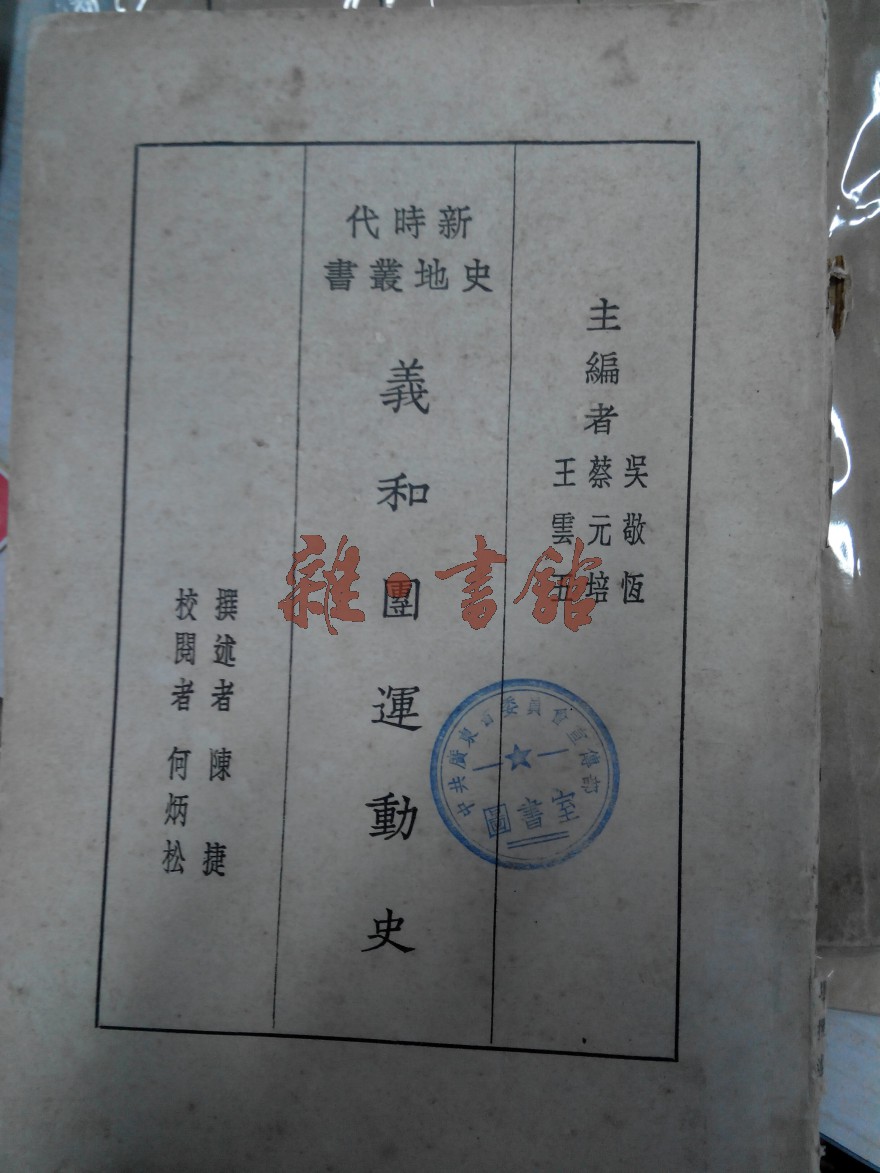 主編者
吳敬恆
蔡元培
王雲五
新時代
史地叢書
義和團運動史
撰述者 陳捷
校閱者 何炳松
雜·書館
中共廣東省委員會宣傳部
圖書室